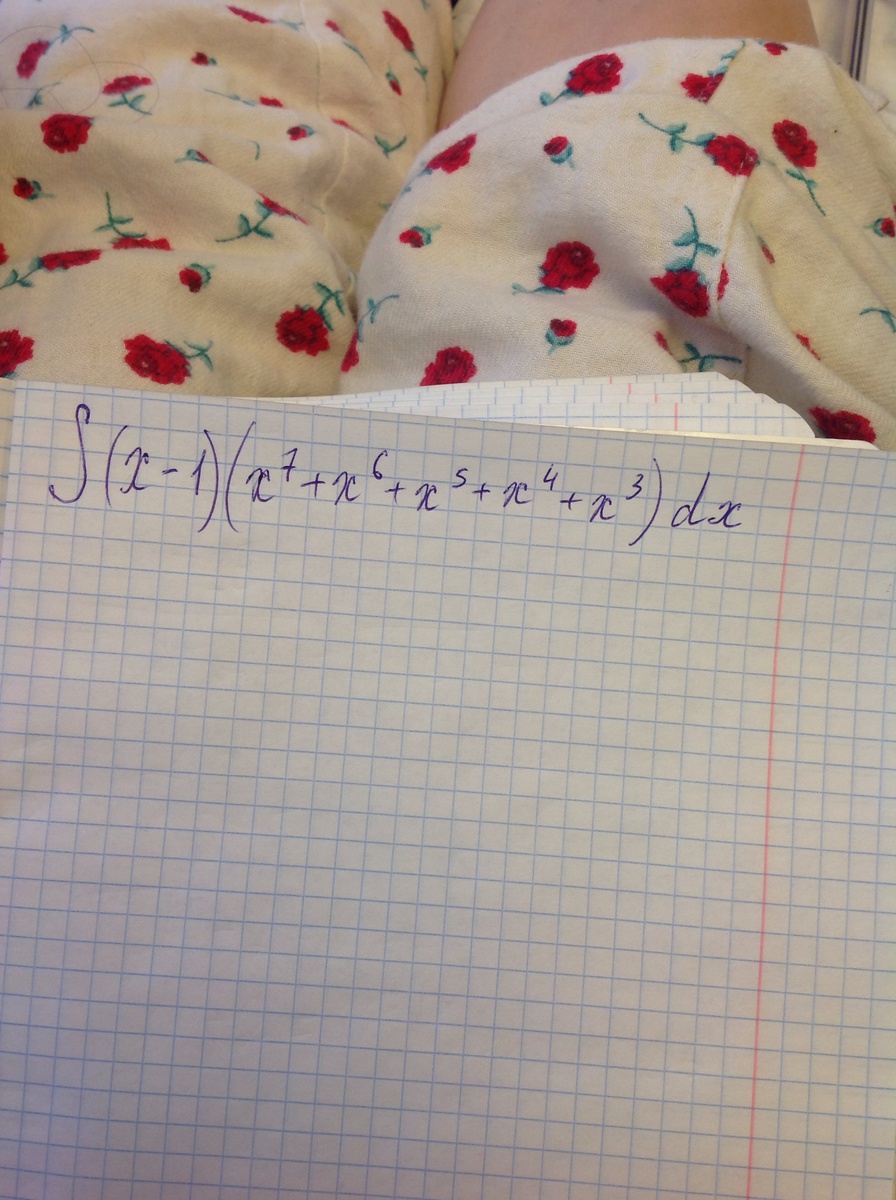 ∫(x-1)(x⁷+x⁶+x⁵+x⁴+x³)dx